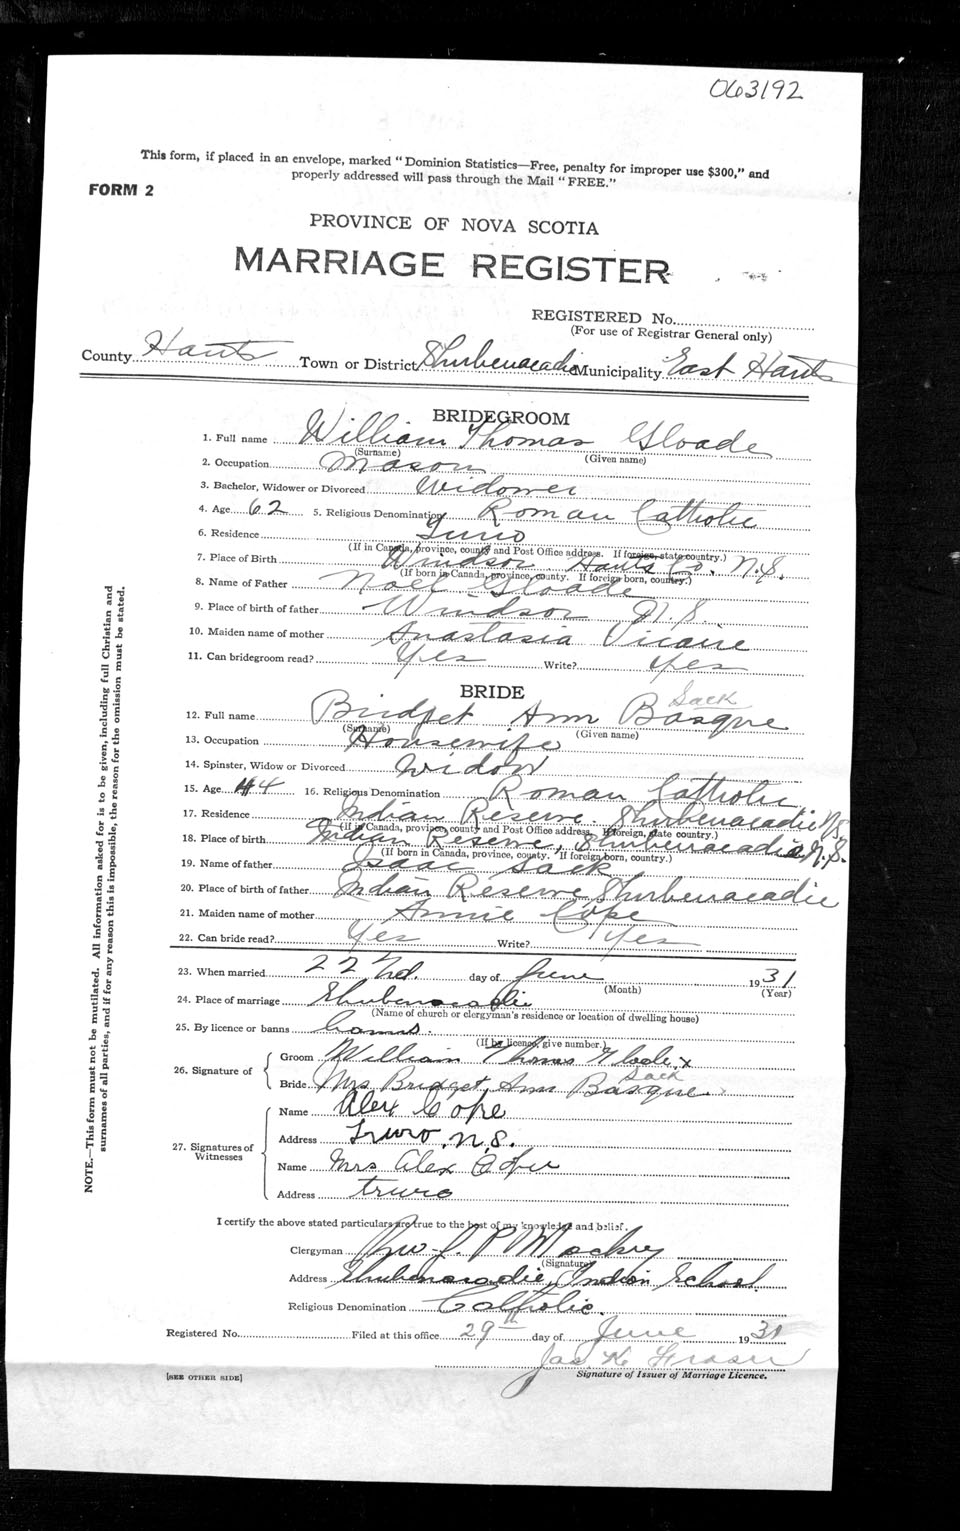 063192
This form, if placed in an envelope, marked "Dominion Statistics—Free, penalty for improper use $300," and
properly addressed will pass through the Mail "FREE."
FORM 2
PROVINCE OF NOVA SCOTIA
MARRIAGE REGISTER
REGISTERED No.
(For use of Registrar General only)
County Hants Town or District Shubenacadie Municipality East Hants
BRIDEGROOM
1. Full name William Thomas Gloade
(Surname) (Given name)
2. Occupation Mason
3. Bachelor, Widower or Divorced Widower
4. Age 62 5. Religious Denomination Roman Catholic
6. Residence Truro
(If in Canada, province, county and Post Office address. If foreign, state country.)
7. Place of Birth Windsor Hants Co. N.S.
(If born in Canada, province, county. If foreign born, country.)
8. Name of Father Noel Gloade
9. Place of birth of father Windsor N.S.
10. Maiden name of mother Anastasia Vicaire
11. Can bridegroom read? Yes Write? Yes
BRIDE
Sack
12. Full name Bridget Ann Basque
(Surname) (Given name)
13. Occupation Housewife
14. Spinster, Widow or Divorced Widow
15. Age 44 16. Religious Denomination Roman Catholic
17. Residence Indian Reserve. Shubenacadie N.S.
(If in Canada, province, county and Post Office address. If foreign, state country.)
18. Place of birth Indian Reserve, Shubenacadie, N.S.
(If born in Canada, province, county. If foreign born, country.)
19. Name of father Isaac Sack
20. Place of birth of father Indian Reserve Shubenacadie
21. Maiden name of mother Annie Cope
22. Can bride read? Yes Write? Yes
23. When married 22nd. day of June 1931
(Month) (Year)
24. Place of marriage Shubenacadie
(Name of church or clergyman's residence or location of dwelling house)
25. By licence or banns banns.
(If by licence, give number.)
26. Signature of
Groom William Thomas Gloade x
Sack
Bride Mrs Bridget Ann Basque
27. Signatures of Witnesses
Name Alex Cope
Address Truro, N.S.
Name Mrs Alex Cope
Address truro
I certify the above stated particulars are true to the best of my knowledge and belief.
Clergyman J. P. Mackey
(Signature)
Address Shubenacadie, Indian School.
Religious Denomination Catholic.
Registered No. Filed at this office 29th day of June 1931
Jas K Fraser
Signature of Issuer of Marriage Licence.
[SEE OTHER SIDE]
NOTE.—This form must not be mutilated. All information asked for is to be given, including full Christian and
surnames of all parties, and if for any reason this is impossible, the reason for the omission must be stated.